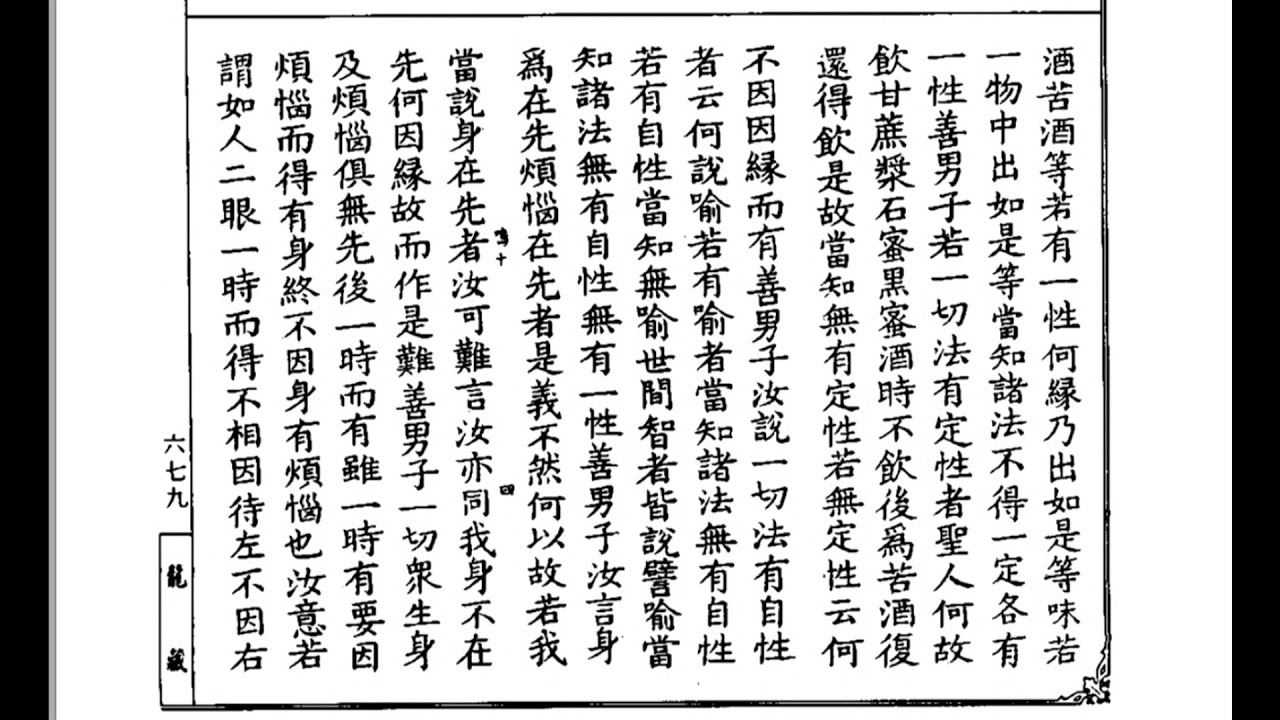 酒苦酒等若有一性何縁乃出如是等味若
一物中出如是等當知諸法不得一定各有
一性善男子若一切法有定性者聖人何故
飲甘蔗漿石蜜黒蜜酒時不飲後爲苦酒復
還得飲是故當知無有定性若無定性云何
不因因縁而有善男子汝説一切法有自性
者云何説喻若有喻者當知諸法無有自性
若有自性當知無喻世間智者皆説譬喻當
知諸法無有自性無有一性善男子汝言身
爲在先煩惱在先者是義不然何以故若我
十
四
當説身在先者汝可難言汝亦同我身不在
先何因縁故而作是難善男子一切衆生身
及煩惱俱無先後一時而有雖一時有要因
煩惱而得有身終不因身有煩惱也汝意若
謂如人二眼一時而得不相因待左不因右
六七九
龍藏